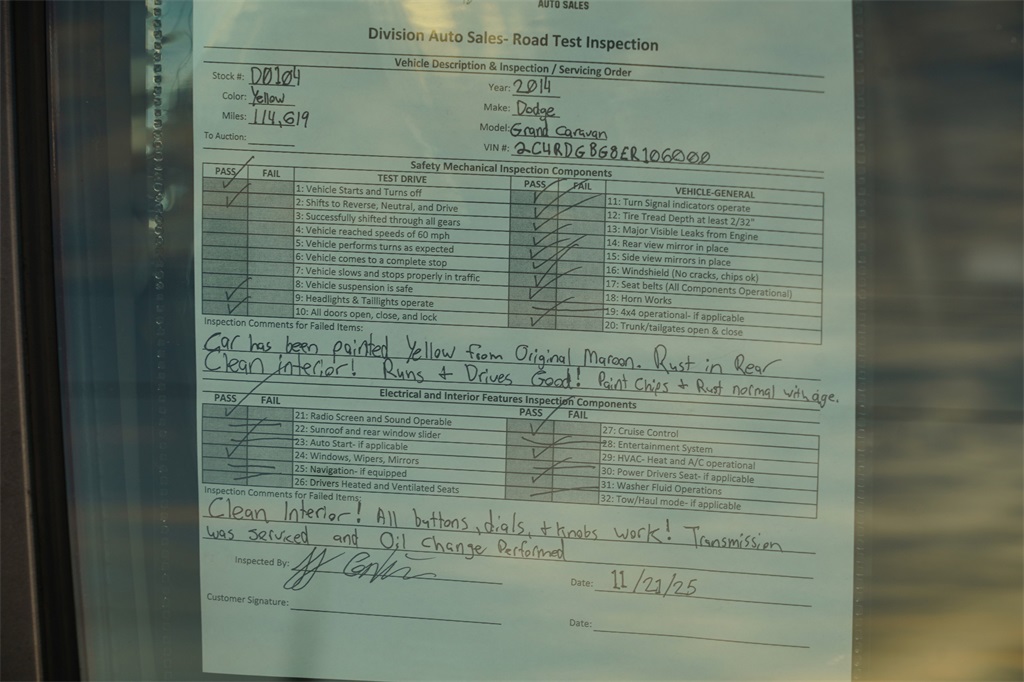 AUTO SALES
Division Auto Sales- Road Test Inspection
Vehicle Description & Inspection / Servicing Order
Stock #: D0104
Color: Yellow
Miles: 114,619
To Auction:
Year: 2014
Make: Dodge
Model: Grand Caravan
VIN #: 2C4RDGBG8ER106000
Safety Mechanical Inspection Components
PASS FAIL TEST DRIVE
1: Vehicle Starts and Turns off
2: Shifts to Reverse, Neutral, and Drive
3: Successfully shifted through all gears
4: Vehicle reached speeds of 60 mph
5: Vehicle performs turns as expected
6: Vehicle comes to a complete stop
7: Vehicle slows and stops properly in traffic
8: Vehicle suspension is safe
9: Headlights & Taillights operate
10: All doors open, close, and lock
PASS FAIL VEHICLE-GENERAL
11: Turn Signal indicators operate
12: Tire Tread Depth at least 2/32"
13: Major Visible Leaks from Engine
14: Rear view mirror in place
15: Side view mirrors in place
16: Windshield (No cracks, chips ok)
17: Seat belts (All Components Operational)
18: Horn Works
19: 4x4 operational- if applicable
20: Trunk/tailgates open & close
Inspection Comments for Failed Items:
Car has been painted Yellow from Original Maroon. Rust in Rear
Clean interior! Runs & Drives Good! Paint Chips & Rust normal with age.
Electrical and Interior Features Inspection Components
PASS FAIL
21: Radio Screen and Sound Operable
22: Sunroof and rear window slider
23: Auto Start- if applicable
24: Windows, Wipers, Mirrors
25: Navigation- if equipped
26: Drivers Heated and Ventilated Seats
PASS FAIL
27: Cruise Control
28: Entertainment System
29: HVAC- Heat and A/C operational
30: Power Drivers Seat- if applicable
31: Washer Fluid Operations
32: Tow/Haul mode- if applicable
Inspection Comments for Failed Items:
Clean Interior! All buttons, dials, & knobs work! Transmission
was serviced and Oil Change Performed
Inspected By:
Date: 11/21/25
Customer Signature:
Date: